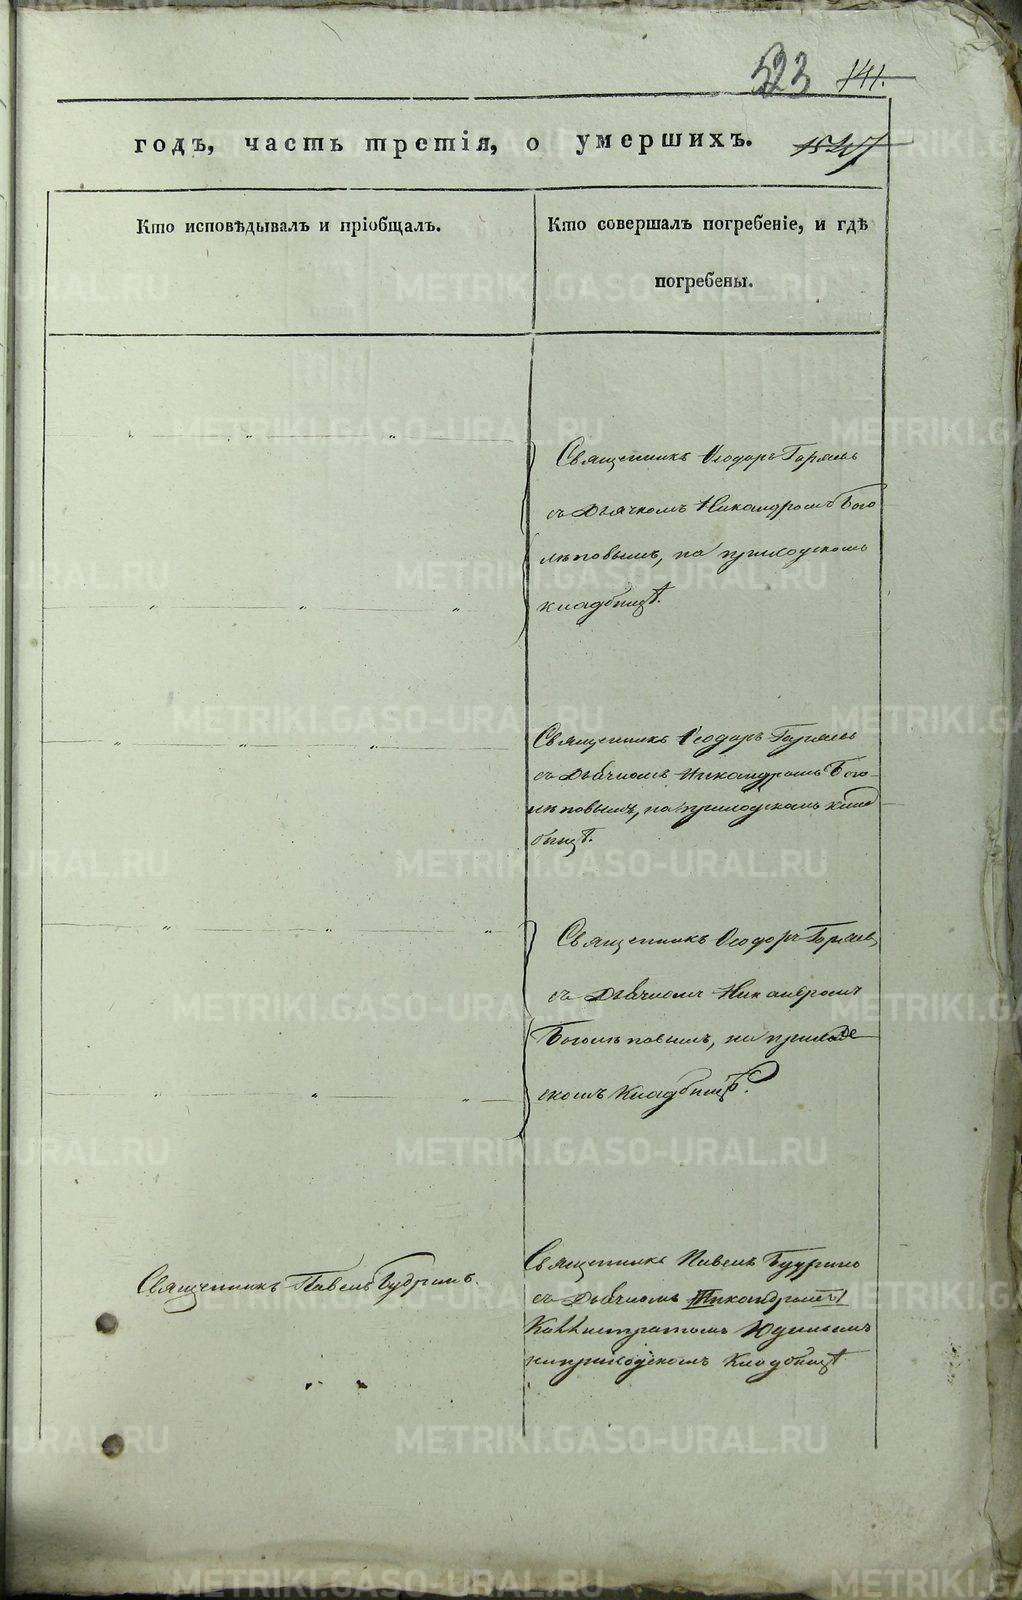 523 141.
годъ, часть третія, о умершихъ. 1547
Кто исповѣдывалъ и пріобщалъ.
Кто совершалъ погребеніе, и гдѣ
погребены.
Священникъ Ѳеодоръ Горяевъ
съ Дьячкомъ Никандромъ Бого
лѣповымъ, на приходскомъ
кладбищѣ.
Священникъ Ѳеодоръ Горяевъ
съ Дьячкомъ Никандромъ Бого-
лѣповымъ, на приходскомъ клад
бищѣ.
Священникъ Ѳеодоръ Горяевъ,
съ Дьячкомъ Никандромъ
Боголѣповымъ, на приход
скомъ Кладбищѣ.
Священникъ Павелъ Будринъ.
Священникъ Павелъ Будринъ
съ Дьячкомъ Никандромъ
Каллистратомъ Юдинымъ
на приходскомъ Кладбищѣ
METRIKI.GASO-URAL.RU